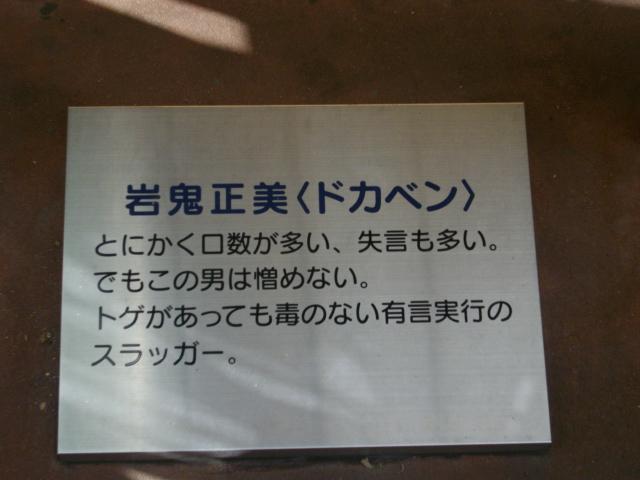 岩鬼正美〈ドカベン〉
とにかく口数が多い、失言も多い。
でもこの男は憎めない。
トゲがあっても毒のない有言実行の
スラッガー。